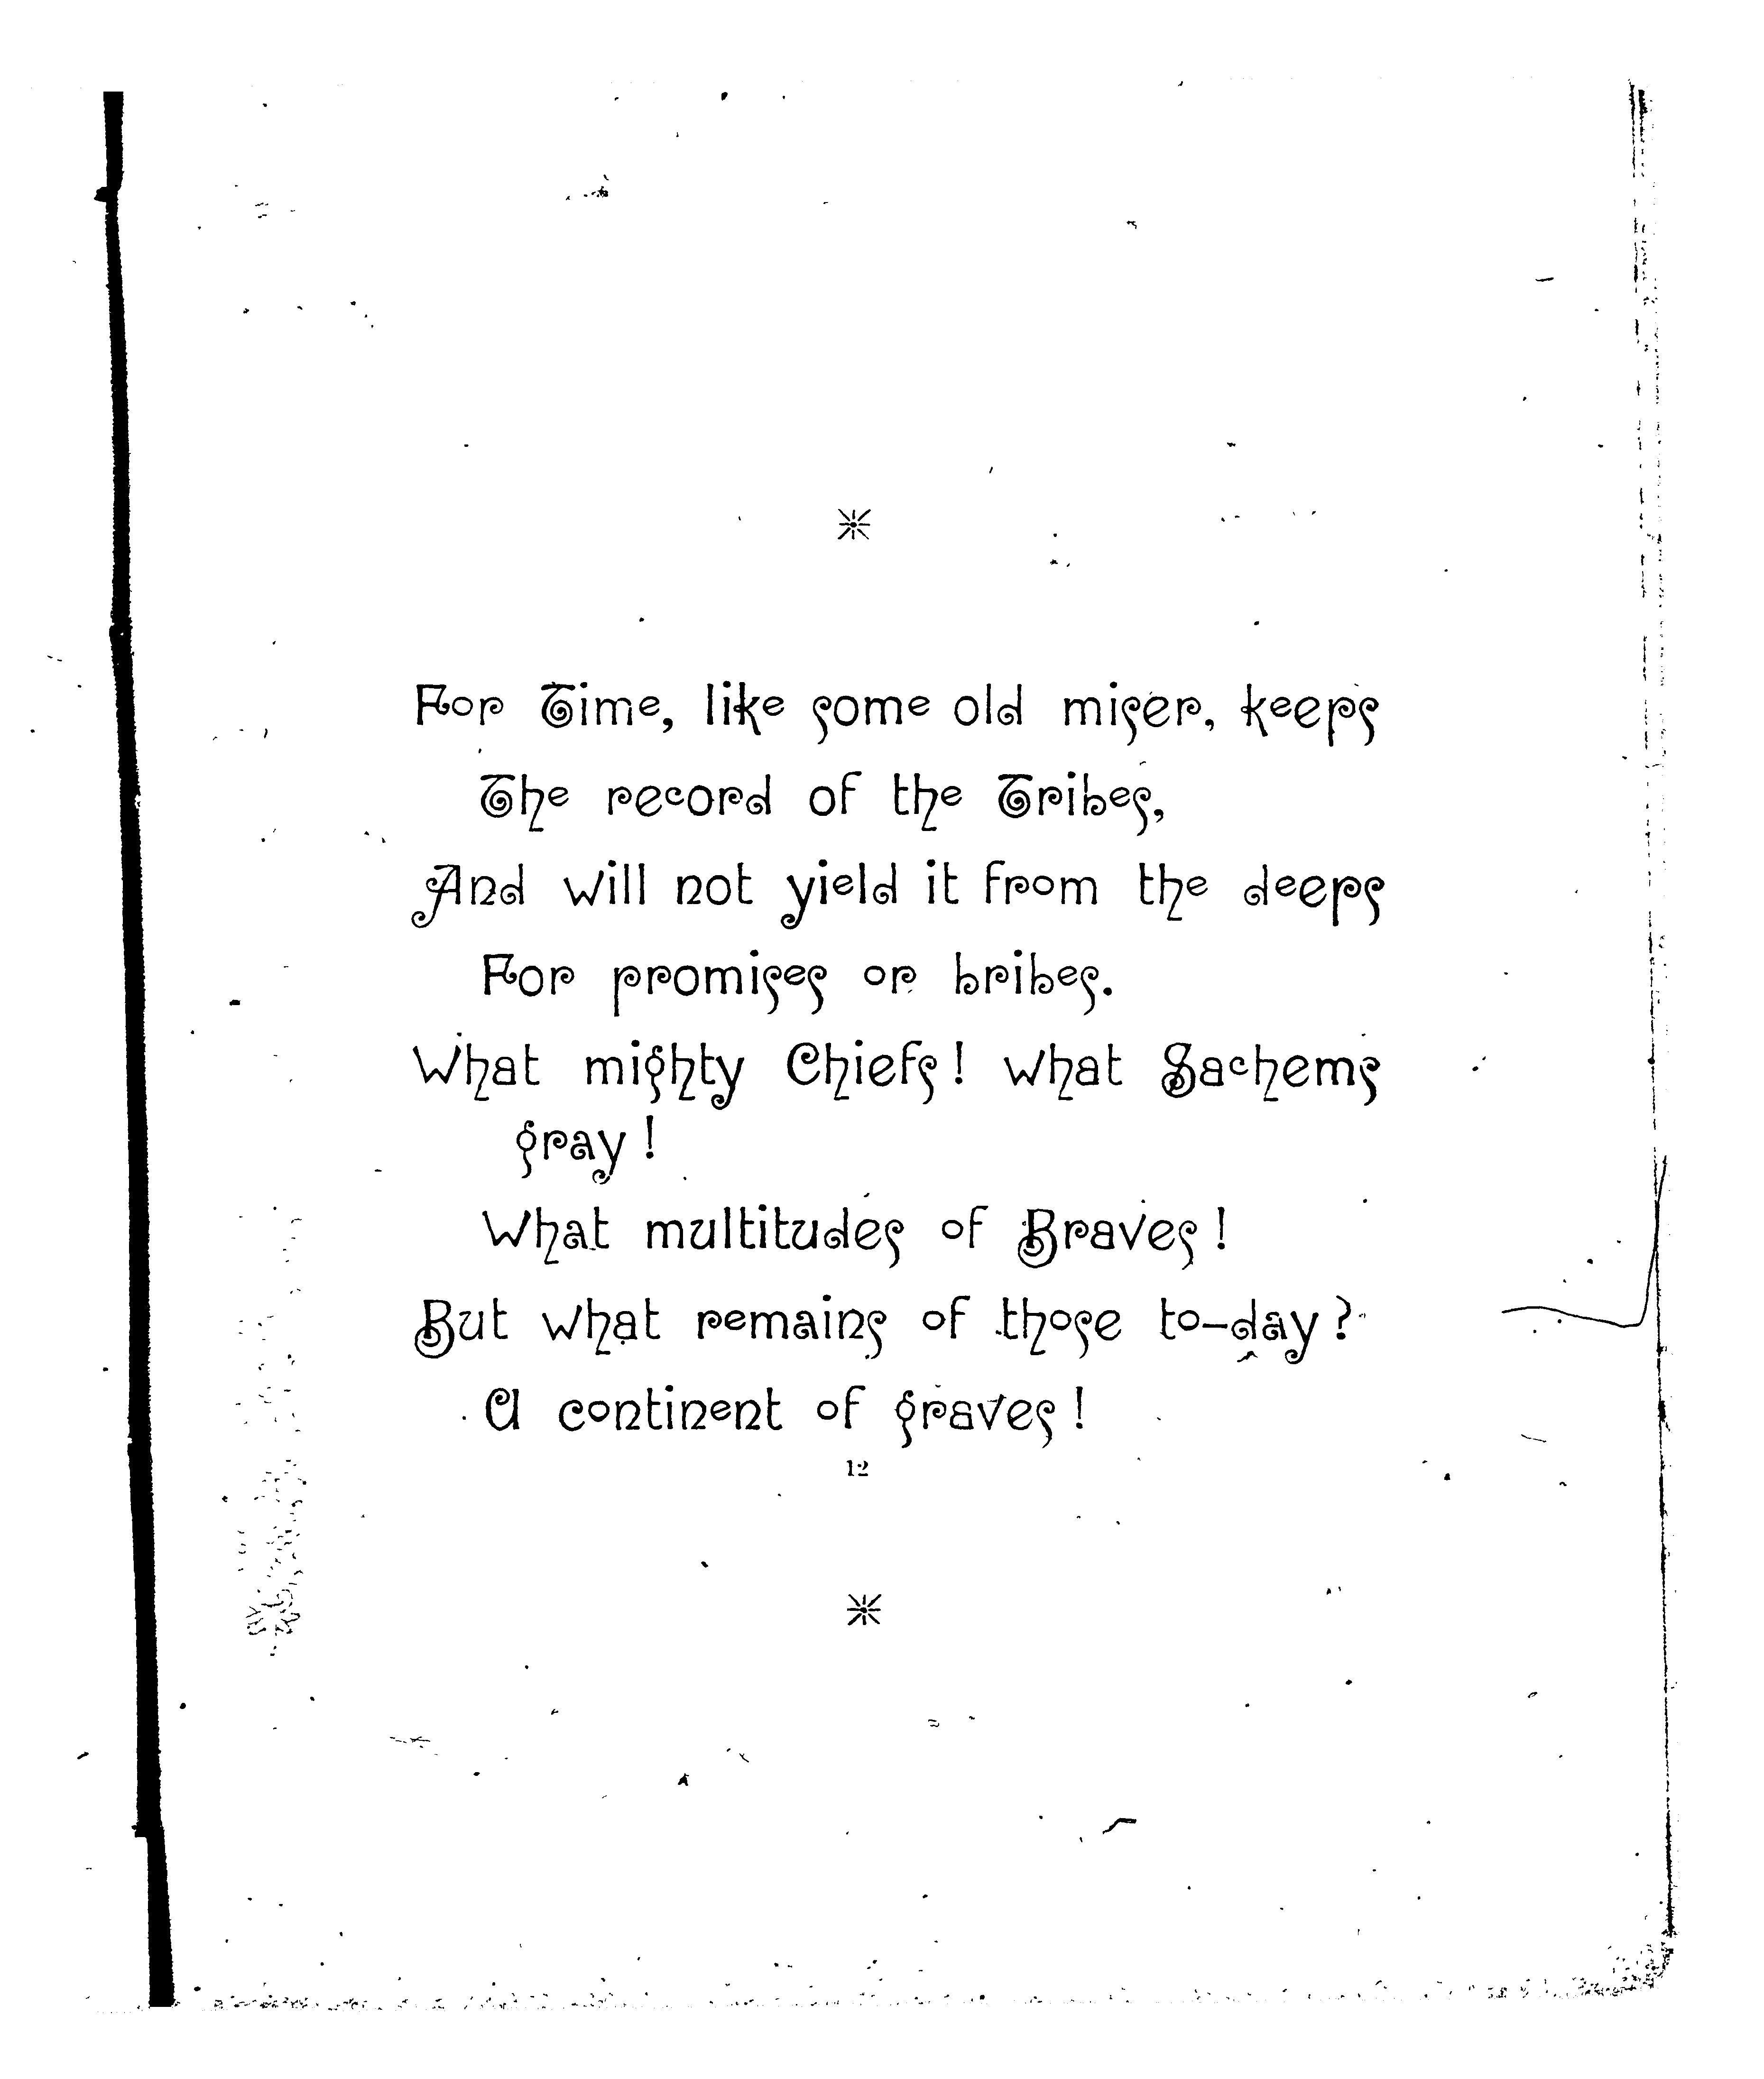 For Time, like some old miser, keeps
The record of the Tribes,
And will not yield it from the deeps
For promises or bribes.
What mighty Chiefs! what Sachems
gray!
What multitudes of Braves!
But what remains of those to-day?
A continent of graves!
12